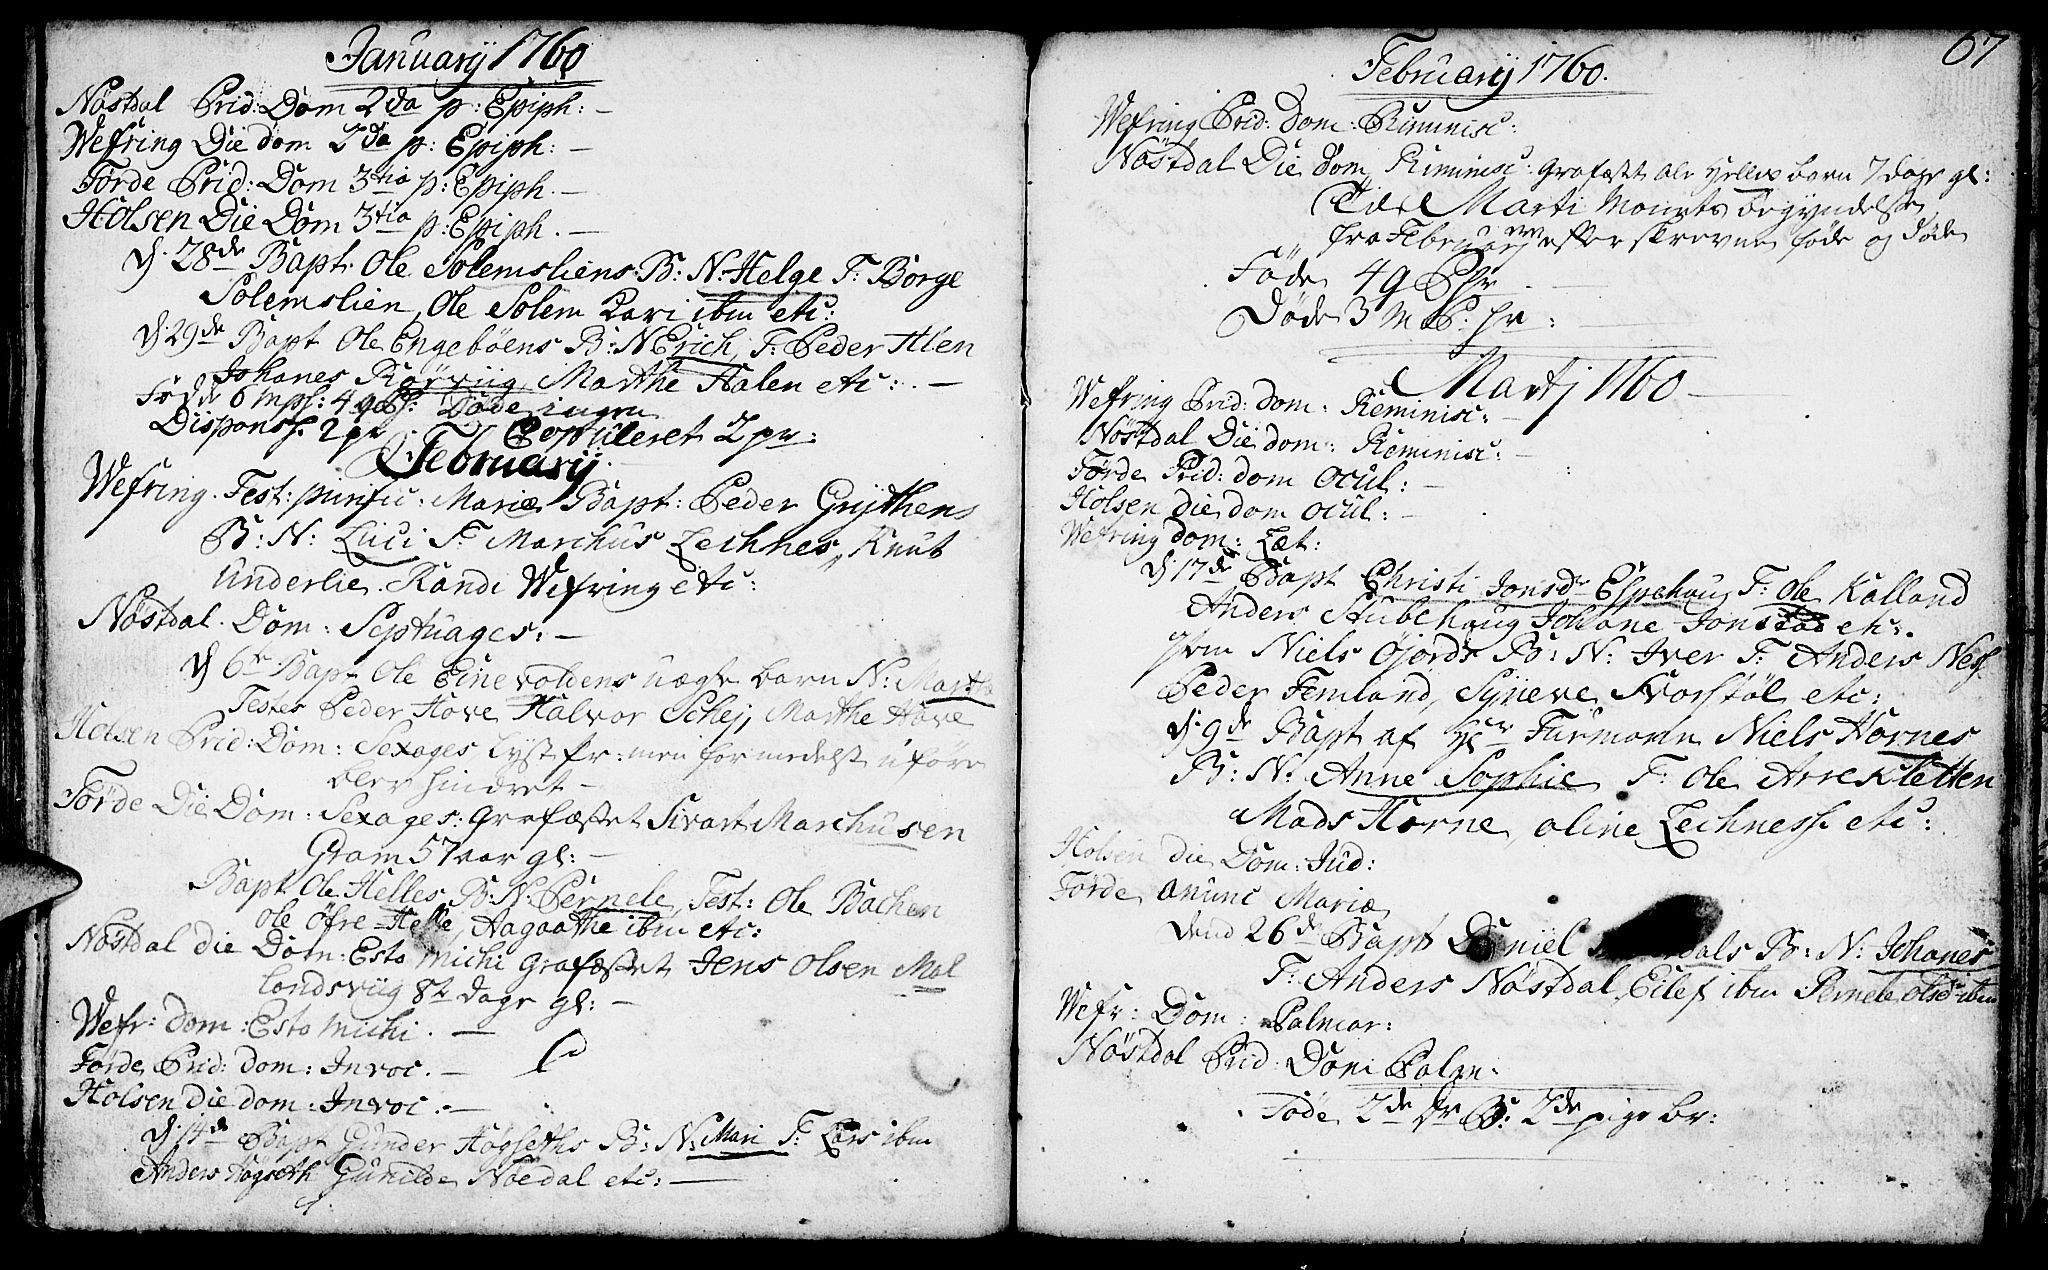 Januarij 1760
Nöstdal Prid: Dom 2da p: Epiph: —
Wefring Die dom 2da p: Epiph: —
Förde Prid: Dom 3tia p: Epiph. —
Holsen Die Dom 3tia p: Epiph. —
d. 28de Bapt. Ole Solemsliens B: N. Helge F: Börge
Solemslien, Ole Solem Kari ibm etc:
d. 29de Bapt Ole Engeböens B: N Erich, F: Peder Hlen
Johanes Rörviig, Marthe Halen etc: . —
Föd 6 4 Döde ingen
Dispenss. 2 pr Copuleret 2 pr:
Februarij.
Wefring. Fest: purific: Mariæ Bapt: Peder Grÿthens
B: N: Luci F: Marchus Lechnes, Knut
Underlie. Randi Wefring etc:
Nöstdal. Dom: Septuages: —
d 6te Bapt Ole Einevoldens uægte barn N: Martha
Testes Peder Hove Halvor Schej, Marthe Hove
Holsen Prid: Dom: Sexages Lyst for: men formedelst uföre
blev hindret —
Förde Die Dom: Sexages: Grafæstet Sivart Marchusen
Gram 57 aar gl: —
Bapt Ole Helles B: N. Pernele, Test: Ole Bachen
Ole Öfre-Helle, Aagaathe ibm etc:
Nöstdal die Dom: Esto Michi Grafæstet Jens Olsen Mal
landsviig 82 dage gl: —
Wefr: dom: Esto Michi. —
Förde Prid: dom: Invoc. —
Holsen Die dom: Invoc. —
d. 14de Bapt Gunder Högseths B: N: Mari F: Lars ibm
Anders Högseth Gunilde Noedal etc: —
67
Februarij 1760.
Wefring Prid: Dom: Riminisc:
Nöstdal Die Dom, Riminisc: Grafæstet Ole Helles barn 7 dage gl:
Til Marti Monets begyndelse
fra Februarij ere efterskrevne föde og döde
Föde 4
Döde 3
Martj 1760 —
Wefring Prid: dom: Reminisc: —
Nöstdal Die dom: Reminisc: —
Förde Prid: dom Ocul: —
Holsen die dom Ocul: —
Wefring Dom: Læt:
d. 17de Bapt Christi Jonsdr Espehaug F: Ole Kalland
Anders Stubehaug Johane Jonstad etc.
Niels Öjords B: N: Iver F: Anders Ness
Peder Femland, Syneve Svorstöl etc:
d. 9de Bapt af Hr Furmann Niels Hornes
B: N: Anne Sophie F: Ole Arrekletten
Mads Horne, Oline Lechness etc:
Holsen die Dom: Jud:
Förde anunc Mariæ
dend 26de Bapt Daniel B: N: Johanes
F: Anders Nöstdal, Eilef ibm Pernele Olsd ibm
Wefr: Dom: Palmar:
Nöstdal Prid: Dom Palm.
Föde 2de 2de pige br: